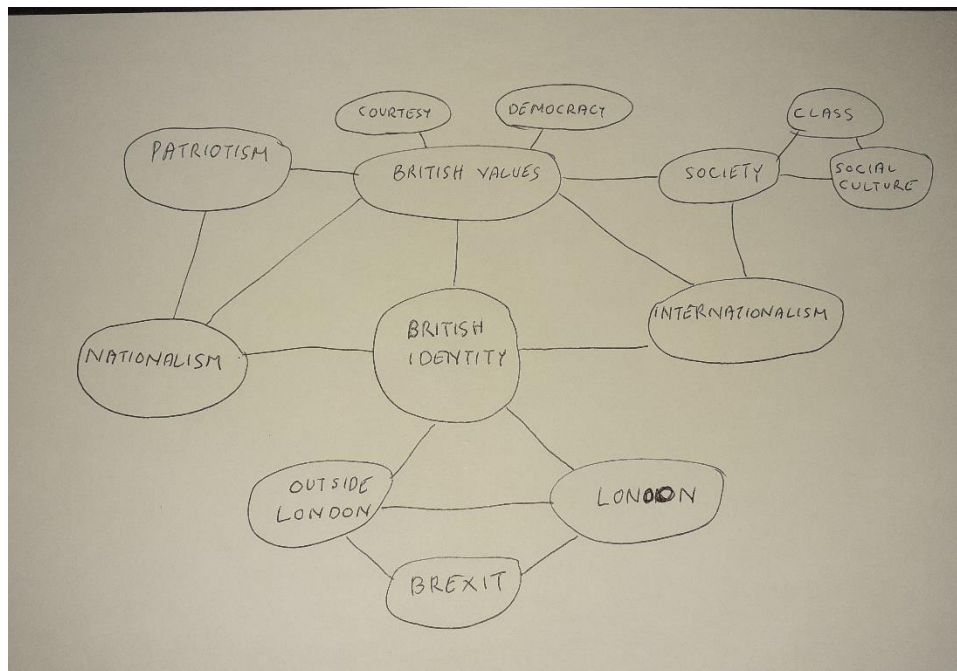 COURTESY
DEMOCRACY
CLASS
PATRIOTISM
BRITISH VALUES
SOCIETY
SOCIAL
CULTURE
NATIONALISM
BRITISH
IDENTITY
INTERNATIONALISM
OUTSIDE
LONDON
LONDON
BREXIT